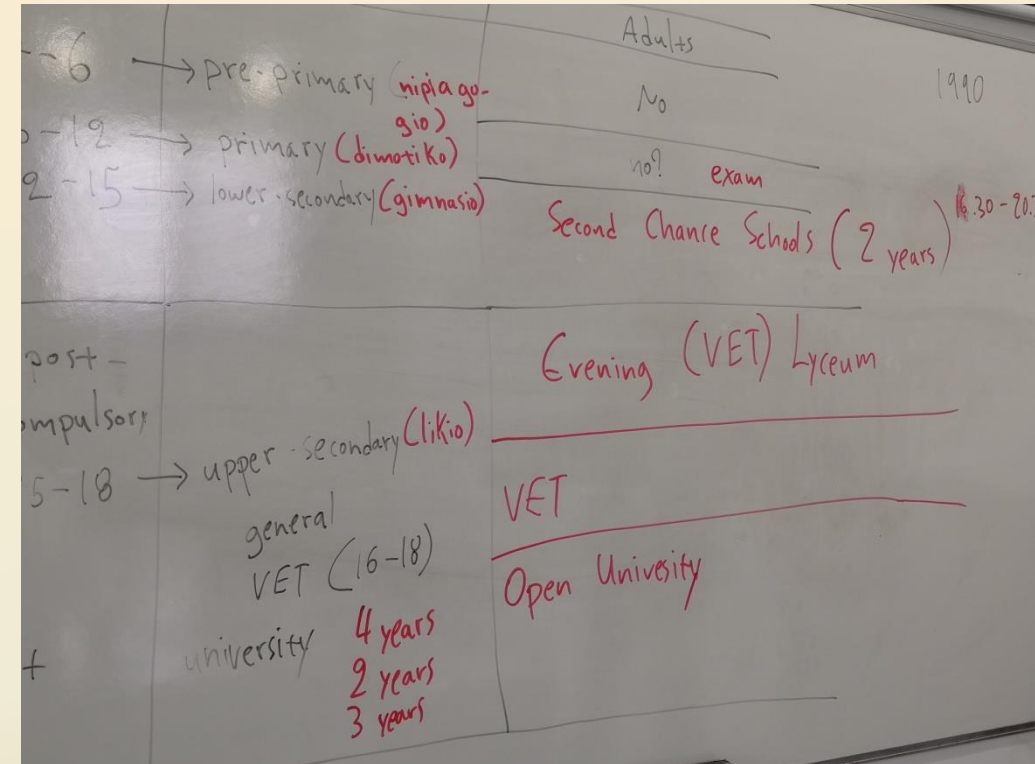 Adults
--6 → pre-primary (nipiago-
gio)
No
1990
-12 → primary (dimotiko)
no? exam
2-15 → lower-secondary (gimnasio)
Second Chance Schools (2 years)
.30-20:
post-
ompulsory
Evening (VET) Lyceum
5-18 → upper-secondary (likio)
general
VET (16-18)
VET
+ university 4 years
2 years
3 years
Open Univesity